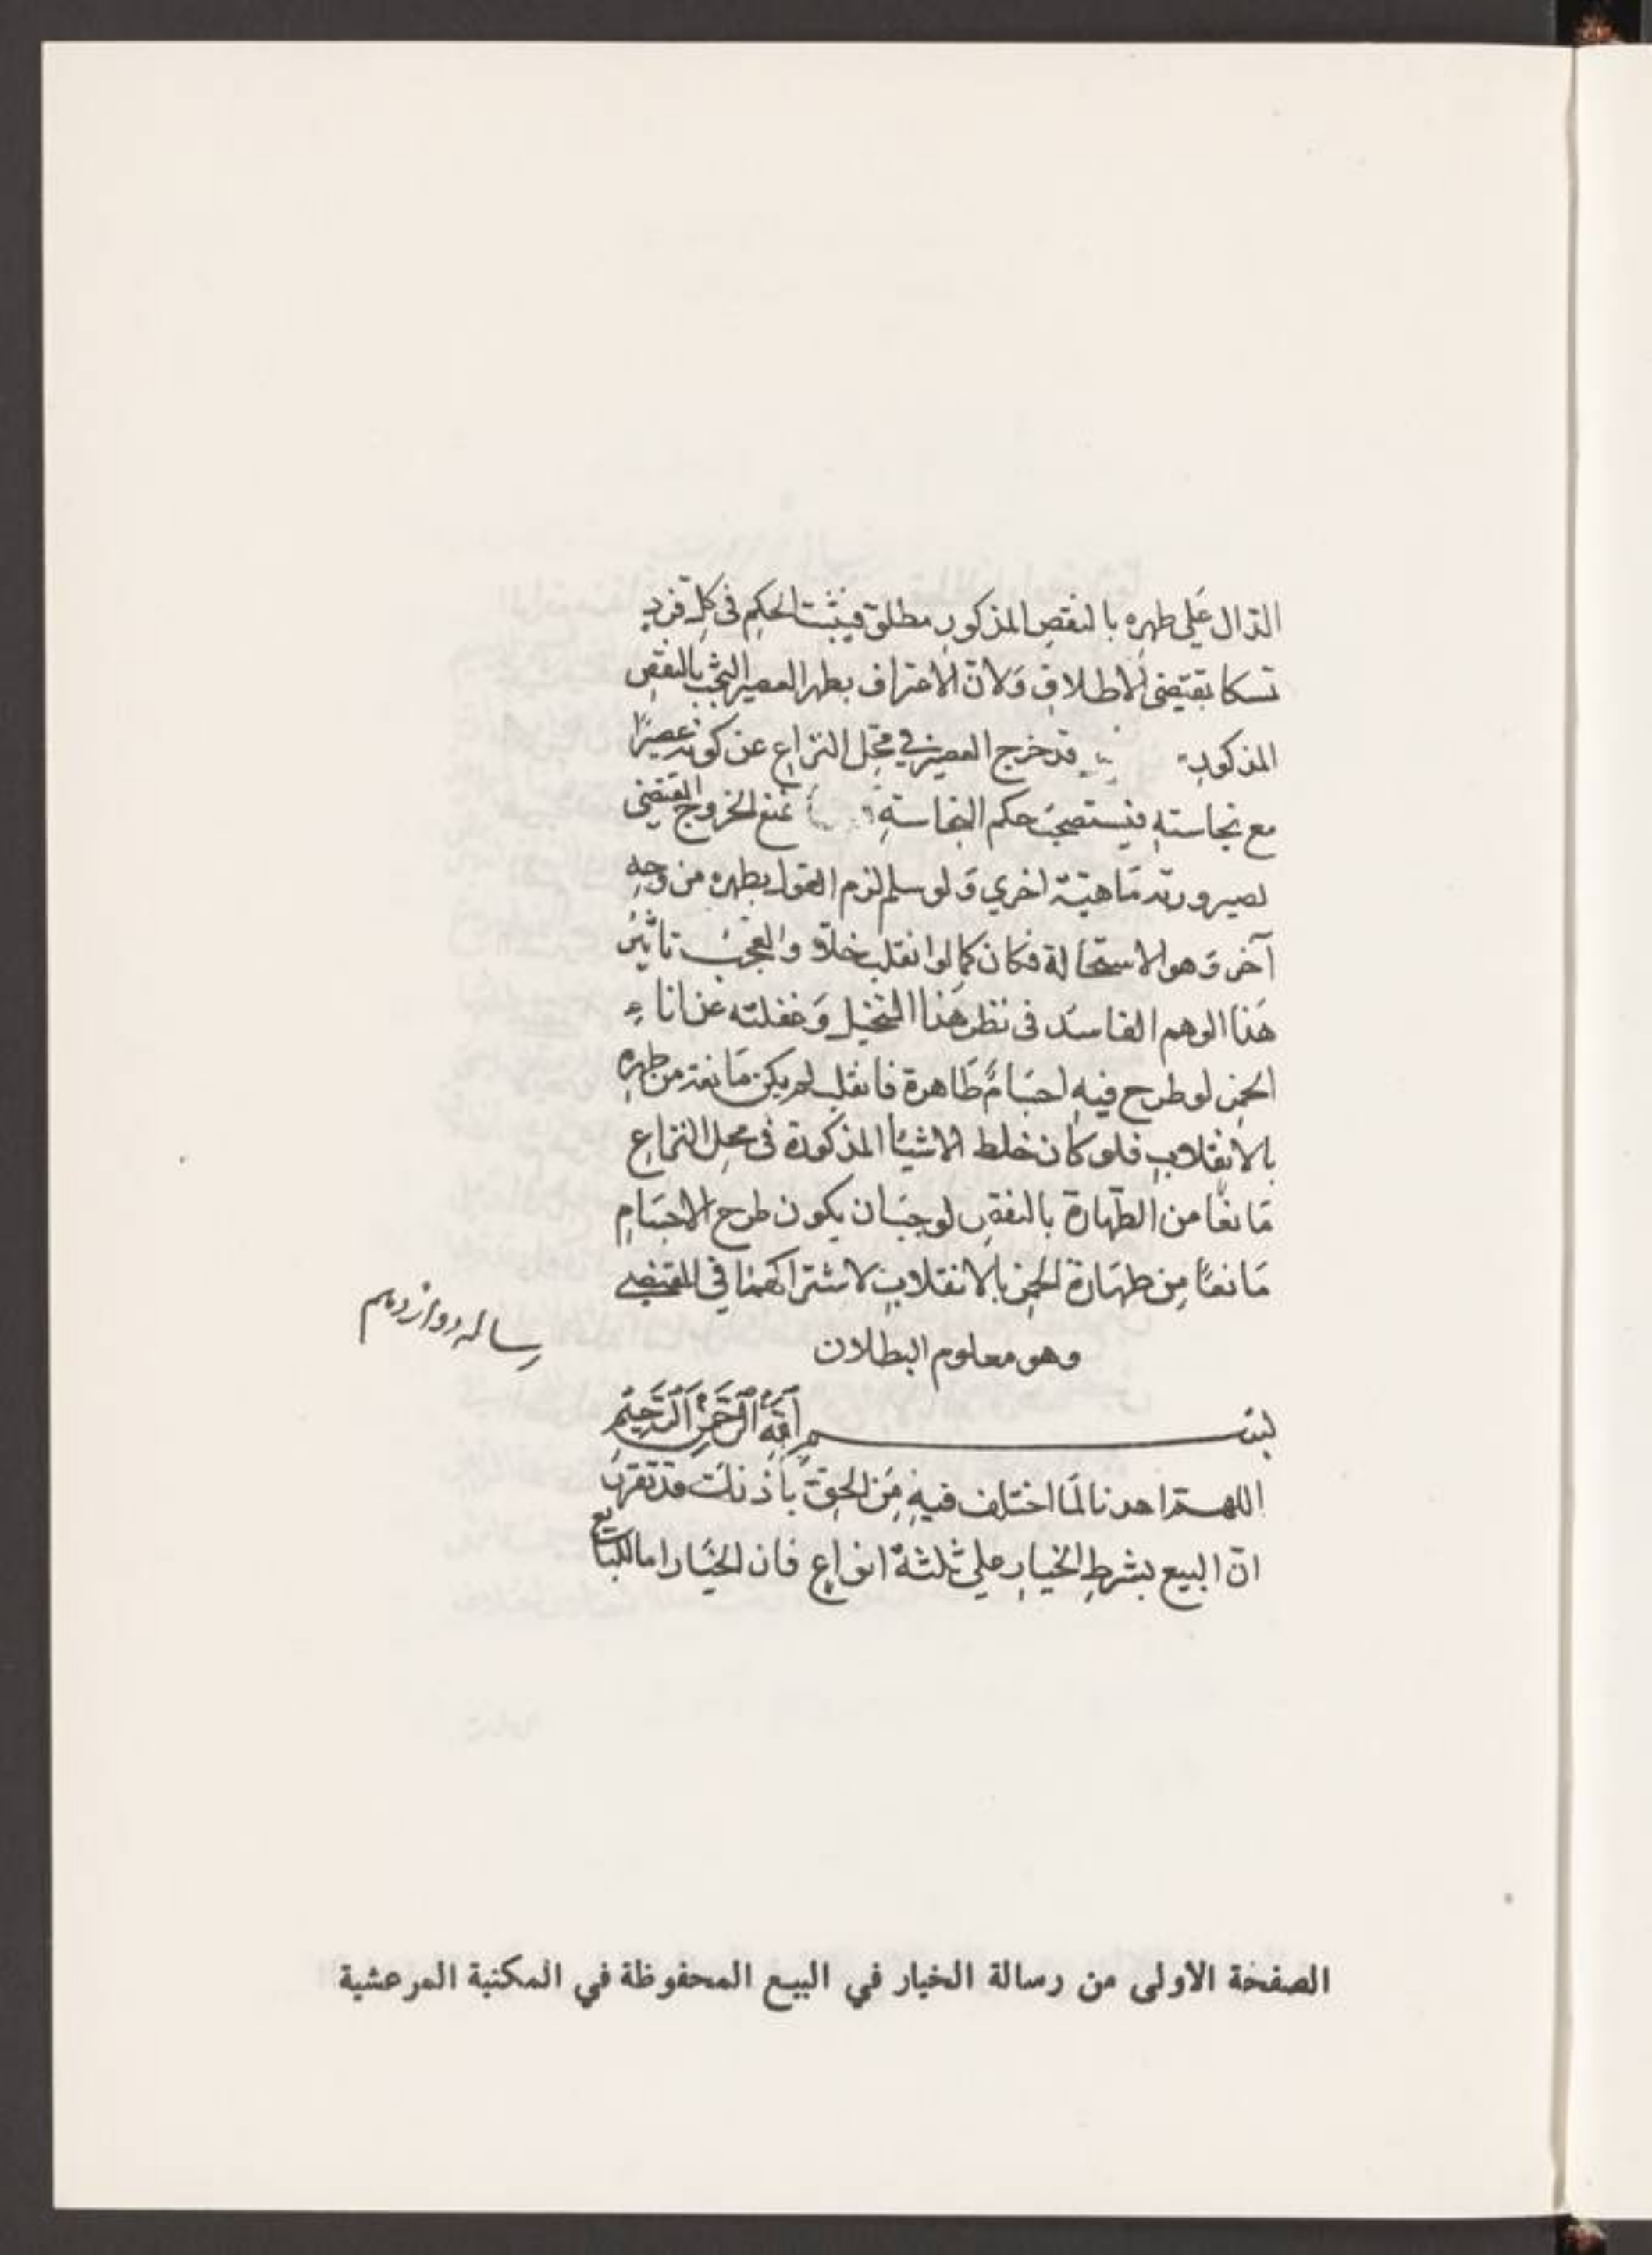 الدال على طهره بالنقص المذكور مطلق فيثبت الحكم في كل فرد
تمسكا بمقتضى الاطلاق ولان الاعتراف بطهر العصير بالنقص
المذكور قد خرج العصير في محل النزاع عن كونه عصيرا
مع نجاسته فيستصحب حكم النجاسة نمنع الخروج المقتضى
لصيرورته ماهية اخري ولو سلم لزم القول بطهره من وجه
آخر وهو الاستحالة فكان كما لو انقلب خلا والعجب تاثير
هذا الوهم الفاسد في نظر هذا المتخيل وغفلته عن اناء
الخمر لو طرح فيه اجسام طاهرة فانقلب لم يكن مانعة من طهره
بالانقلاب فلو كان خلط الاشيا المذكورة في محل النزاع
مانعا من الطهارة بالنقص لوجب ان يكون طرح الاجسام
مانعا من طهارة الخمر بالانقلاب لاشتراكهما في المقتضى
وهو معلوم البطلان
رساله دوازدهم
بسم الله الرحمن الرحيم
اللهم اهدنا لما اختلف فيه من الحق باذنك قد تقرر
ان البيع بشرط الخيار علي ثلثة انواع فان الخيار اما للبايع
الصفحة الاولى من رسالة الخيار في البيع المحفوظة في المكتبة المرعشية